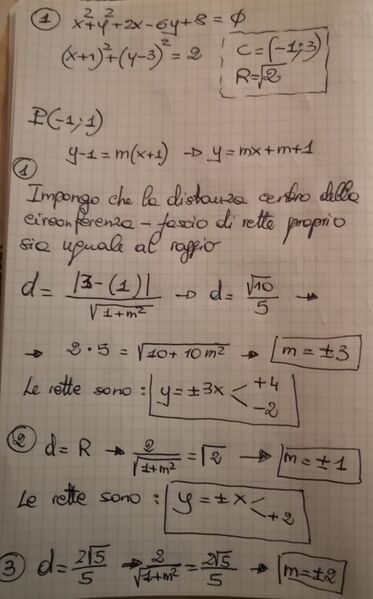 ① x²+y²+2x-6y+8=0
(x+1)²+(y-3)²=2
C=(-1;3)
R=√2
P(-1;1)
y-1=m(x+1) → y=mx+m+1
①
Impongo che la distanza centro della
circonferenza - fascio di rette proprio
sia uguale al raggio
d= |3-(1)|/√(1+m²) → d= √10/5 →
→ 2·5=√(10+10m²) → m=±3
Le rette sono: y=±3x < +4 -2
② d=R → 2/√(1+m²)=√2 → m=±1
Le rette sono: y=±x < +2
③ d=2√5/5 → 2/√(1+m²)=2√5/5 → m=±2